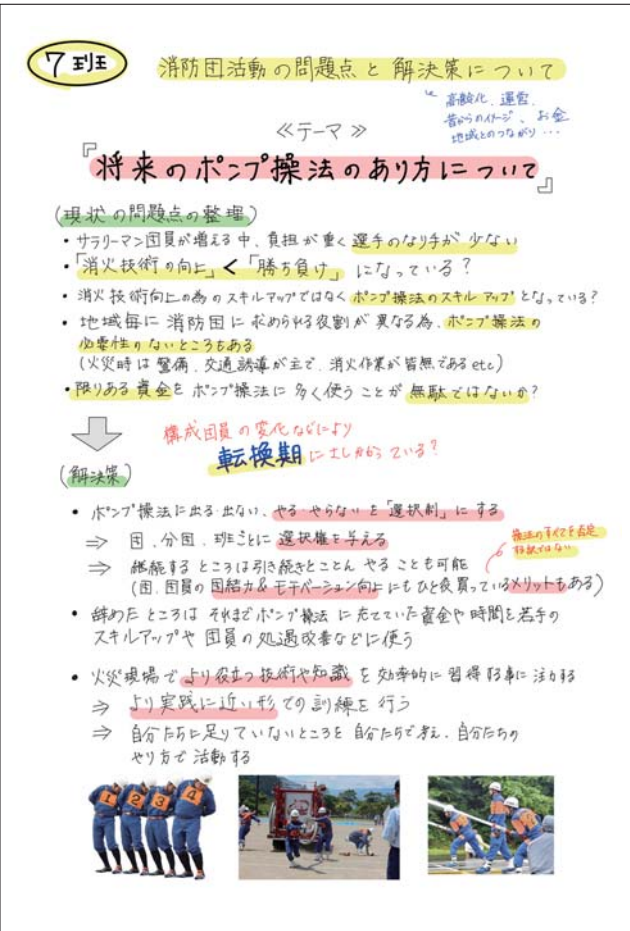 7班
消防団活動の問題点と解決策について
高齢化、運営、
昔からのイメージ、お金
地域とのつながり…
≪テーマ≫
『将来のポンプ操法のあり方について』
(現状の問題点の整理)
・サラリーマン団員が増える中、負担が重く選手のなり手が少ない
・「消火技術の向上」<「勝ち負け」になっている？
・消火技術向上の為のスキルアップではなくポンプ操法のスキルアップとなっている？
・地域毎に消防団に求められる役割が異なる為、ポンプ操法の
必要性のないところもある
(火災時は警備、交通誘導が主で、消火作業が皆無であるetc)
・限りある資金をポンプ操法に多く使うことが無駄ではないか？
構成団員の変化などにより
転換期にさしかかっている？
(解決策)
・ポンプ操法に出る・出ない、やる・やらないを「選択制」にする
⇒ 団、分団、班ごとに選択権を与える
操法のすべてを否定
する訳ではない
⇒ 継続するところは引き続きとことんやることも可能
(団、団員の団結力&モチベーション向上にもひと役買っているメリットもある)
・辞めたところはそれまでポンプ操法に充てていた資金や時間を若手の
スキルアップや団員の処遇改善などに使う
・火災現場でより役立つ技術や知識を効率的に習得する事に注力する
⇒ より実践に近い形での訓練を行う
⇒ 自分たちに足りていないところを自分たちで考え、自分たちの
やり方で活動する
1 2 3 4